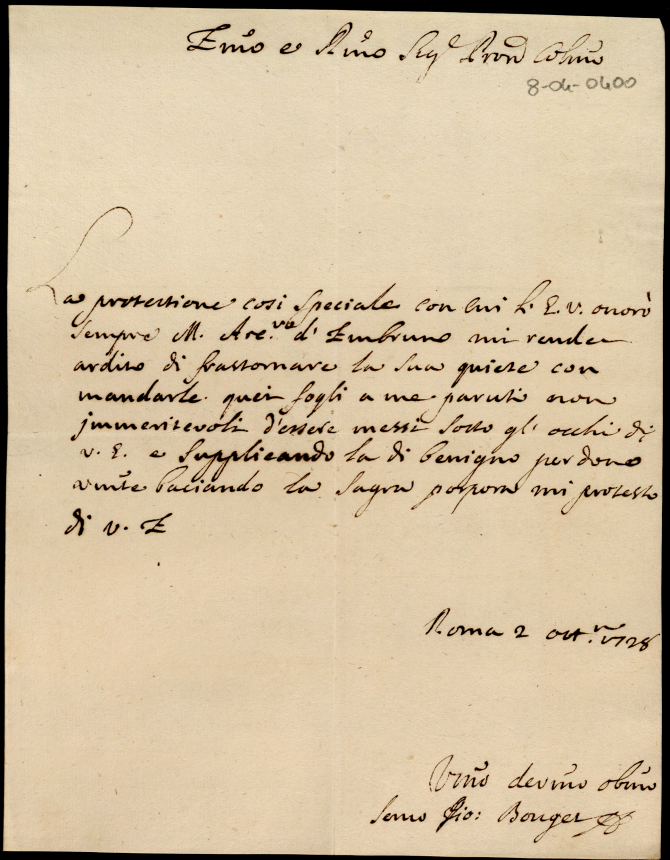 Emo e Rmo Sigr Pron Colmo
8-04-0400
La protettione così speciale con cui l'E. V. onorò
sempre M. Arc.vo d'Embruno mi rende
ardito di frastornare la sua quiete con
mandarle quei fogli a me paruti non
immeritevoli d'essere messi sotto gl'occhi di
V. E. e supplicandola di benigno perdono
umte baciando la sagra porpora mi protesto
di V. E
Roma 2 ott.re 1728
Vmo devmo obmo
Servo Gio: Bouget